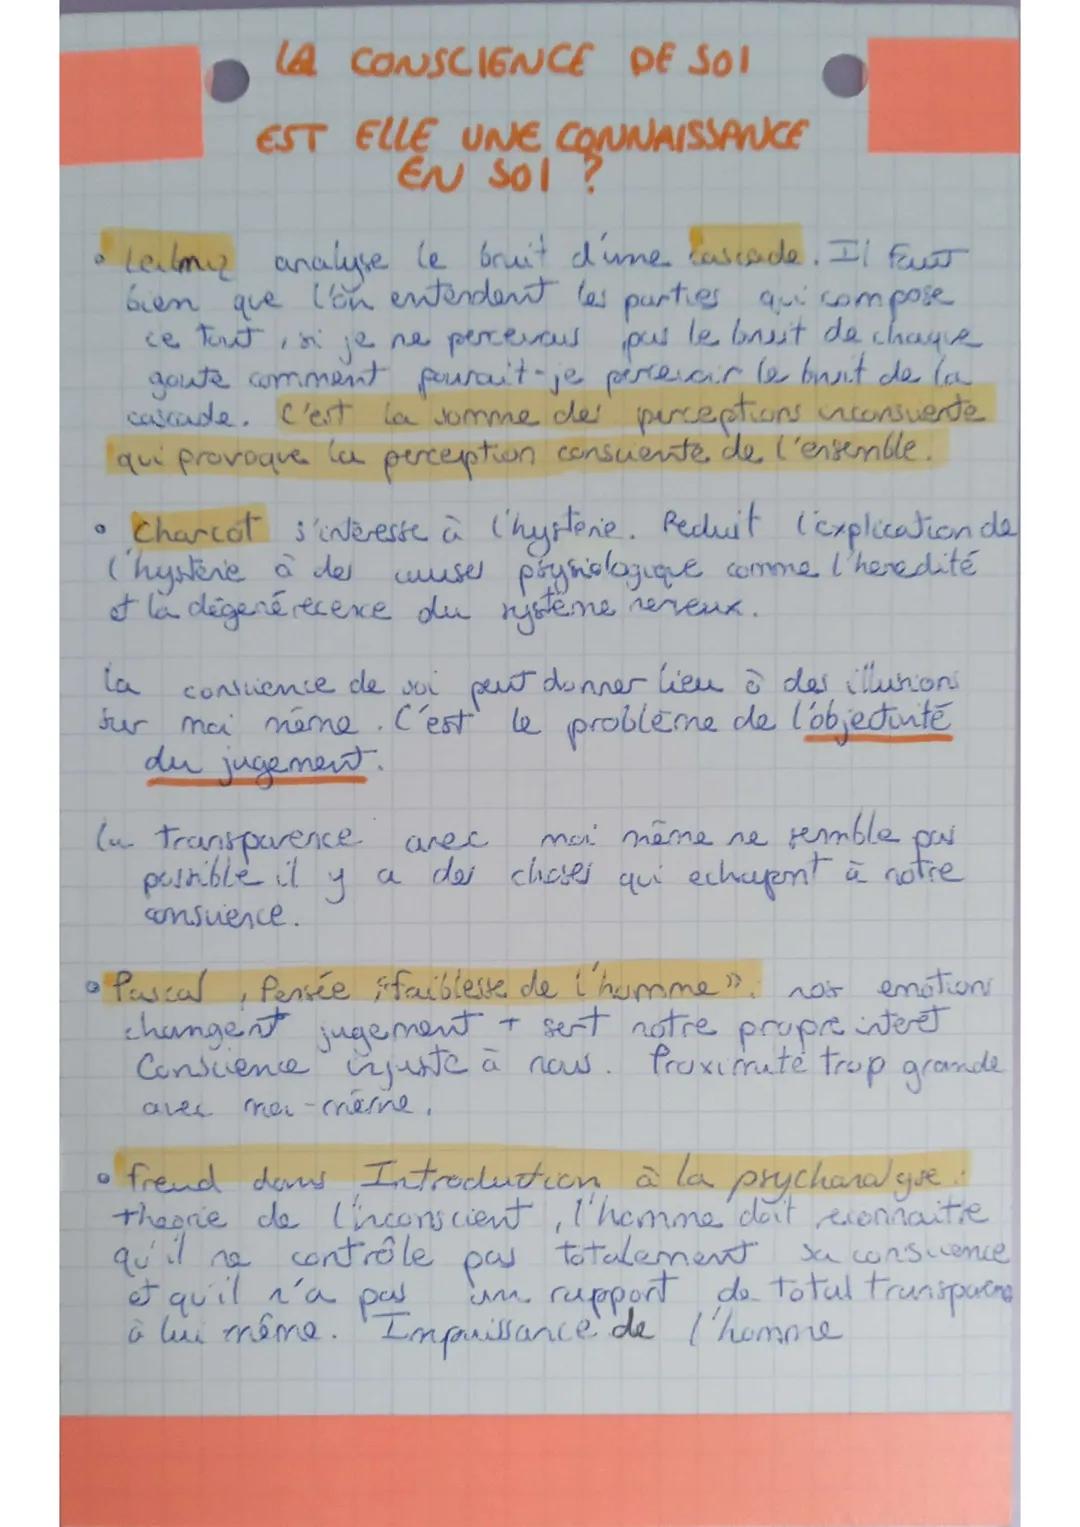 LA CONSCIENCE DE SOI
EST ELLE UNE CONNAISSANCE
EN SOI ?
• Leibniz analyse le bruit d'une cascade. Il Faut
bien que l'on entendent les parties qui compose
ce tout, si je ne percevais pas le bruit de chaque
goute comment pourait-je percevoir le bruit de la
cascade. C'est la somme des perceptions inconsciente
qui provoque la perception consciente de l'ensemble.
• Charcot s'intéresse à l'hystérie. Reduit l'explication de
l'hystérie à des causes physiologique comme l'heredité
et la dégenérecence du système nerveux.
La conscience de soi peut donner lieu à des illusions
sur moi même. C'est le problème de l'objectivité
du jugement.
La transparence avec moi même ne semble pas
possible il y a des choses qui echapent à notre
conscience.
• Pascal, Pensée "faiblesse de l'homme": nos emotions
changent jugement + sert notre propre interêt
Conscience injuste à nous. Proximité trop grande
avec moi-même.
• freud dans Introduction à la psychanalyse:
theorie de l'inconscient, l'homme doit reconnaitre
qu'il ne contrôle pas totalement sa conscience
et qu'il n'a pas un rapport de total transparence
à lui même. Impuissance de l'homme